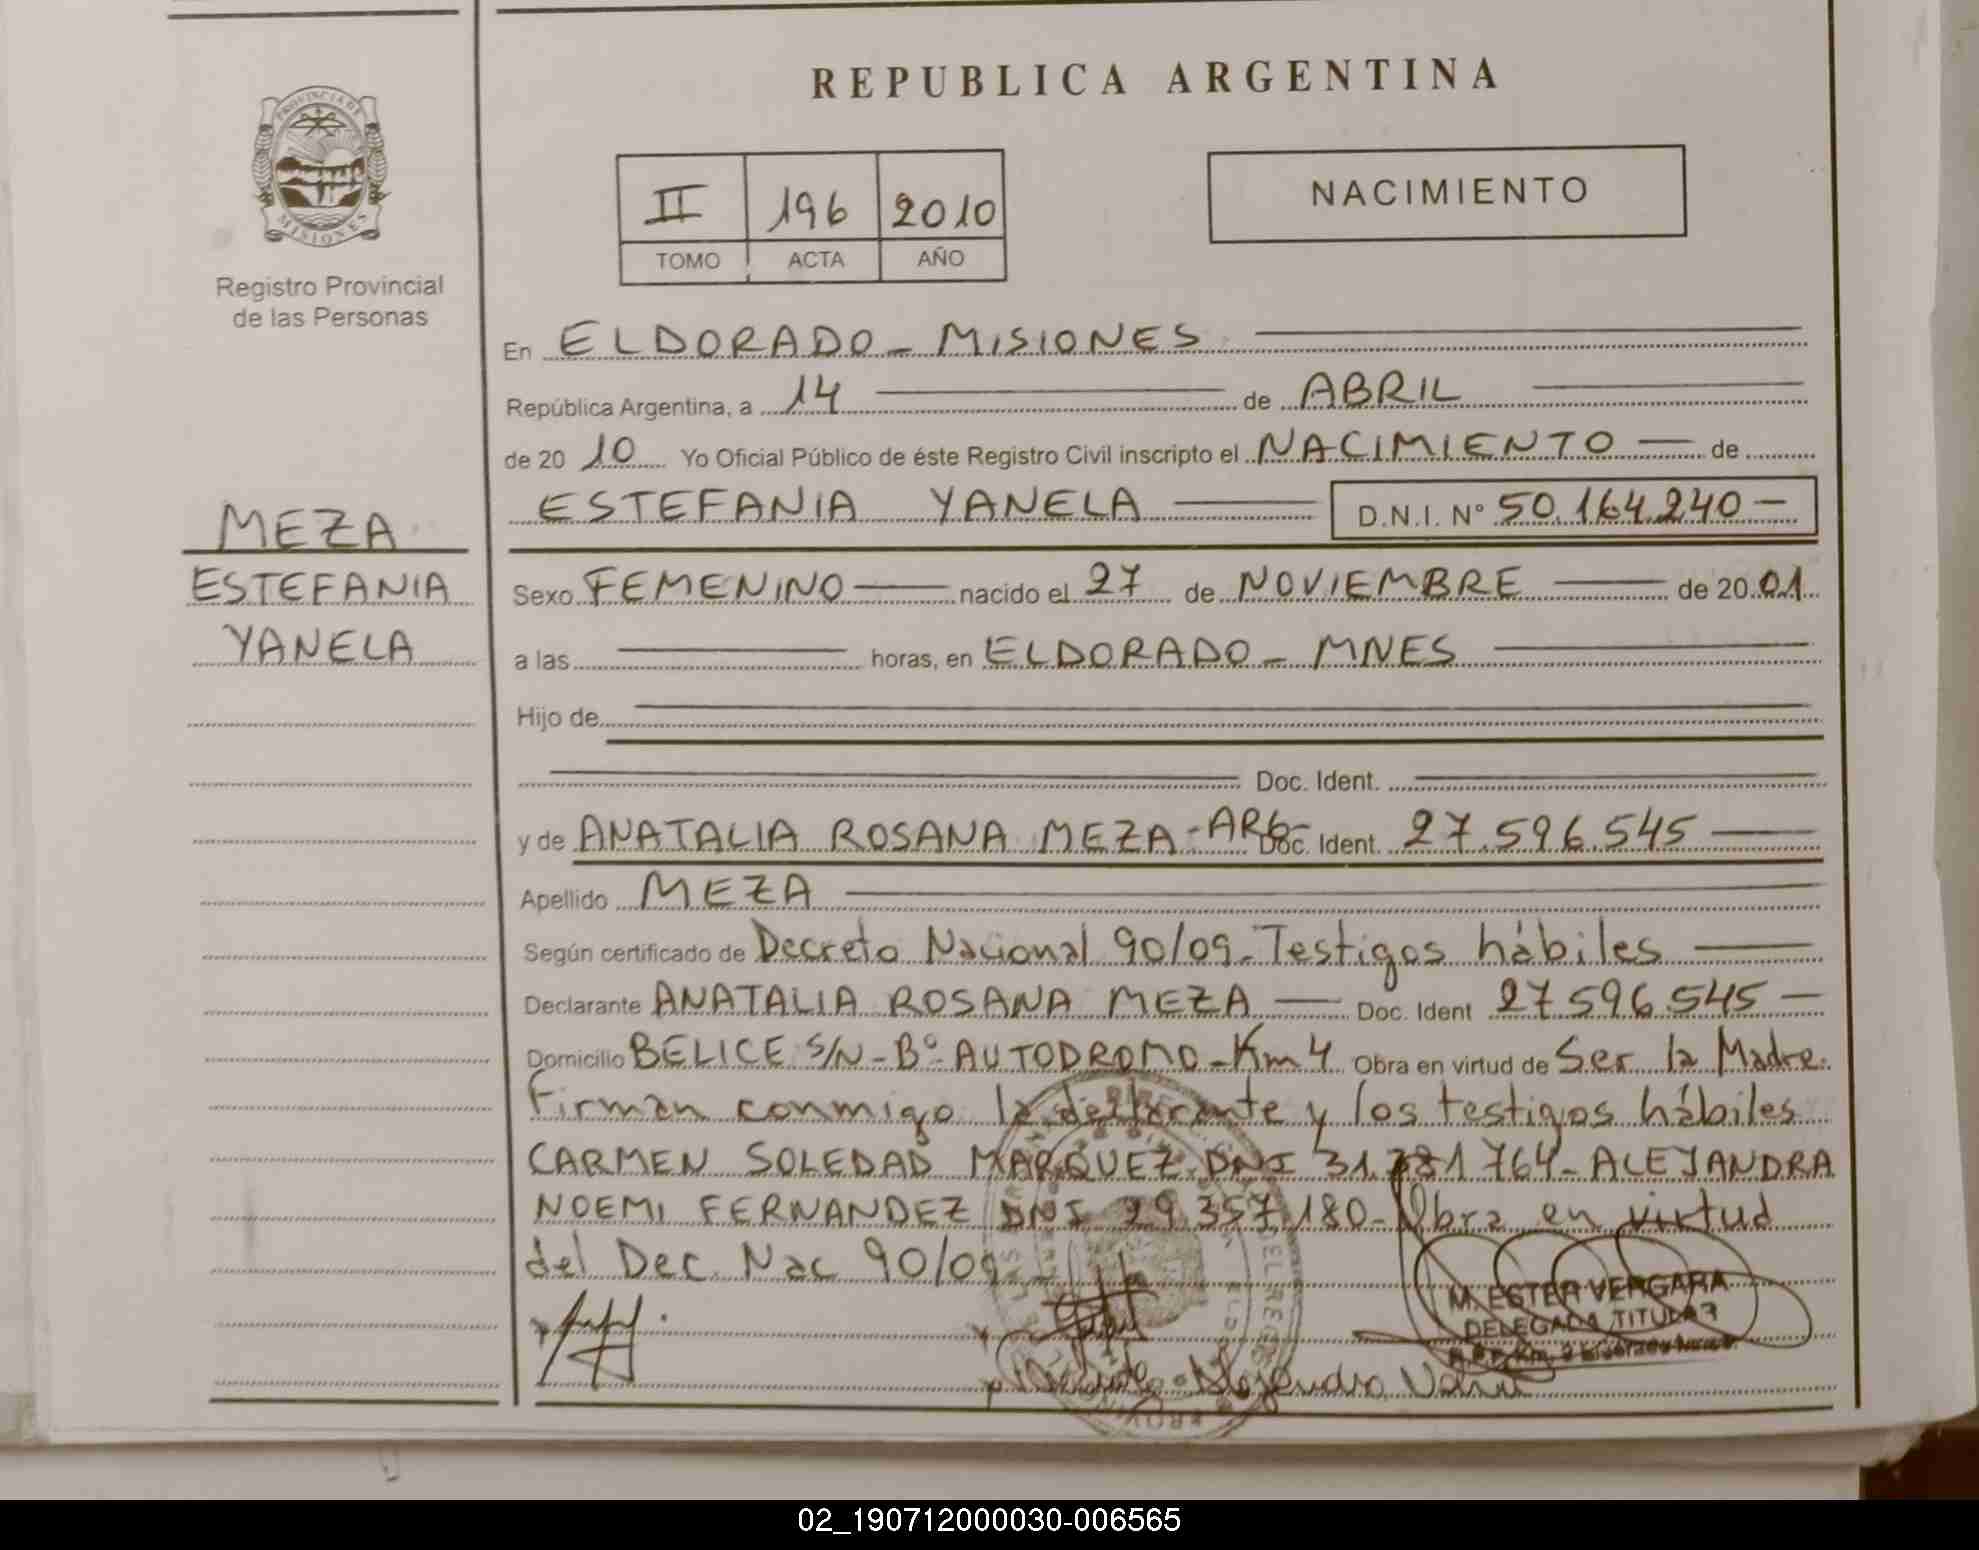 REPUBLICA ARGENTINA
PROVINCIA DE
MISIONES
Registro Provincial
de las Personas
II 196 2010
TOMO ACTA AÑO
NACIMIENTO
MEZA
ESTEFANIA
YANELA
En ELDORADO - MISIONES
República Argentina, a 14 de ABRIL
de 20 10 Yo Oficial Público de éste Registro Civil inscripto el NACIMIENTO de
ESTEFANIA YANELA D.N.I. N° 50.164.240 -
Sexo FEMENINO nacido el 27 de NOVIEMBRE de 20 01
a las horas, en ELDORADO - MNES
Hijo de
Doc. Ident.
y de ANATALIA ROSANA MEZA - ARG - Doc. Ident. 27.596.545
Apellido MEZA
Según certificado de Decreto Nacional 90/09 - Testigos hábiles
Declarante ANATALIA ROSANA MEZA Doc. Ident 27 596 545 -
Domicilio BELICE S/N - B° AUTODROMO - Km 4 Obra en virtud de Ser la Madre.
Firman conmigo la declarante y los testigos hábiles
CARMEN SOLEDAD MARQUEZ DNI 31.781 764 - ALEJANDRA
NOEMI FERNANDEZ DNI 29.357.180 - Obra en virtud
del Dec. Nac 90/09
M. ESTER VERGARA
DELEGADA TITULAR
02_190712000030-006565